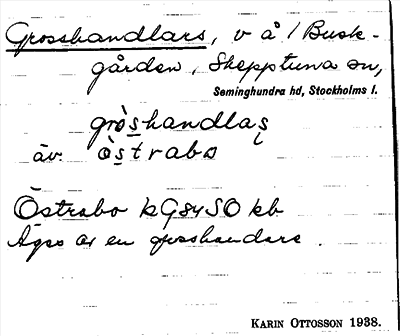 Grosshandlars, v å / Busk-
gården, Skepptuna sn,
Seminghundra hd, Stockholms l.
gròshandlas
äv. òstrabo
Östrabo kG84SO kb
Äges av en grosshandlare.
KARIN OTTOSSON 1938.